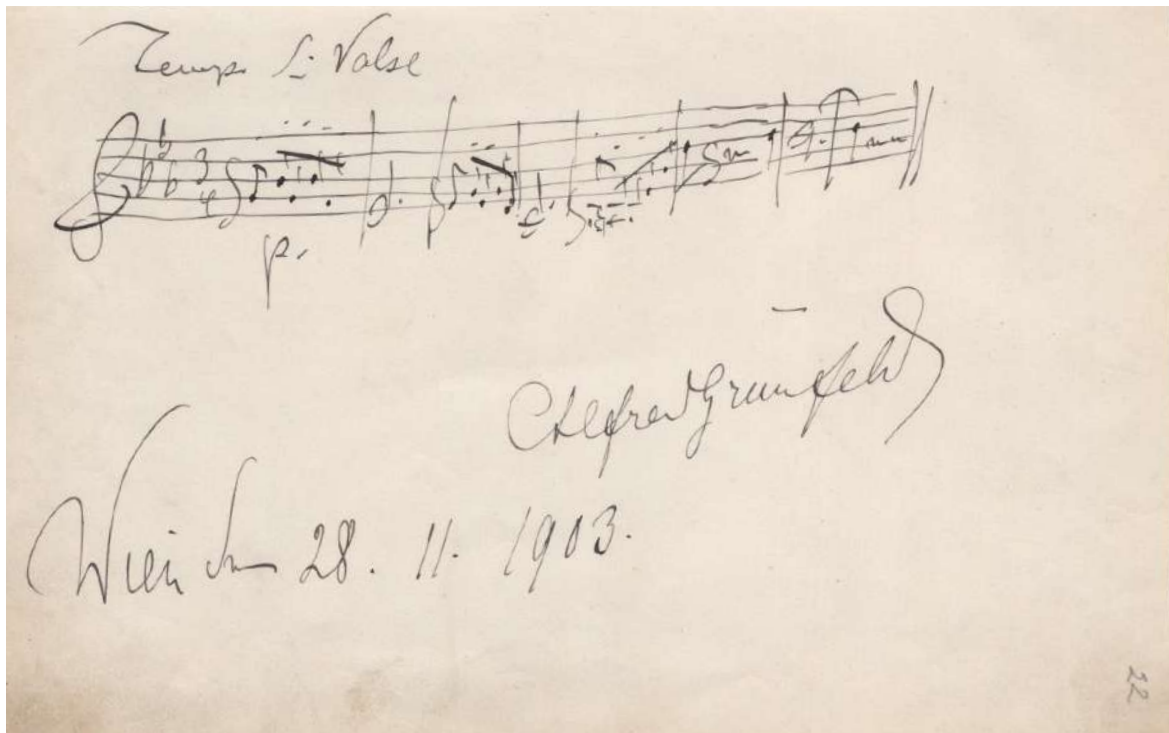 Temps di Valse
3
4
p.
Alfred Grünfeld
Wien den 28. 11. 1903.
22